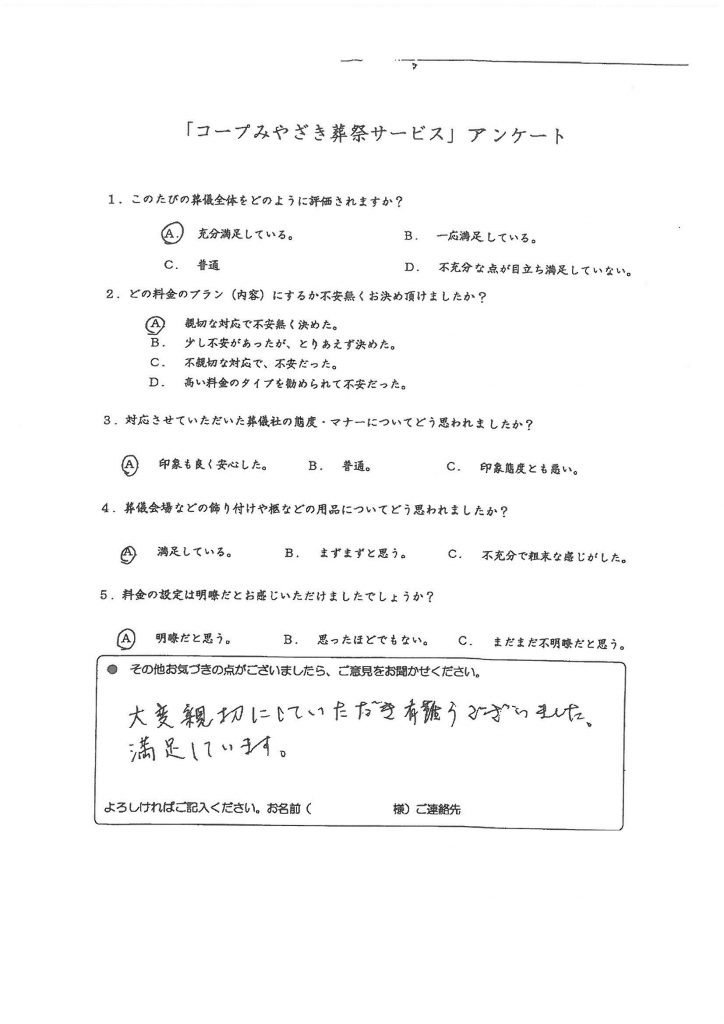 「コープみやざき葬祭サービス」アンケート
1．このたびの葬儀全体をどのように評価されますか？
A. 充分満足している。 B. 一応満足している。
C. 普通 D. 不充分な点が目立ち満足していない。
2．どの料金のプラン（内容）にするか不安無くお決め頂けましたか？
A 親切な対応で不安無く決めた。
B. 少し不安があったが、とりあえず決めた。
C. 不親切な対応で、不安だった。
D. 高い料金のタイプを勧められて不安だった。
3．対応させていただいた葬儀社の態度・マナーについてどう思われましたか？
A 印象も良く安心した。 B. 普通。 C. 印象態度とも悪い。
4．葬儀会場などの飾り付けや柩などの用品についてどう思われましたか？
A 満足している。 B. まずまずと思う。 C. 不充分で粗末な感じがした。
5．料金の設定は明瞭だとお感じいただけましたでしょうか？
A 明瞭だと思う。 B. 思ったほどでもない。 C. まだまだ不明瞭だと思う。
● その他お気づきの点がございましたら、ご意見をお聞かせください。
大変親切にしていただき有難うございました。
満足しています。
よろしければご記入ください。お名前（ 様）ご連絡先